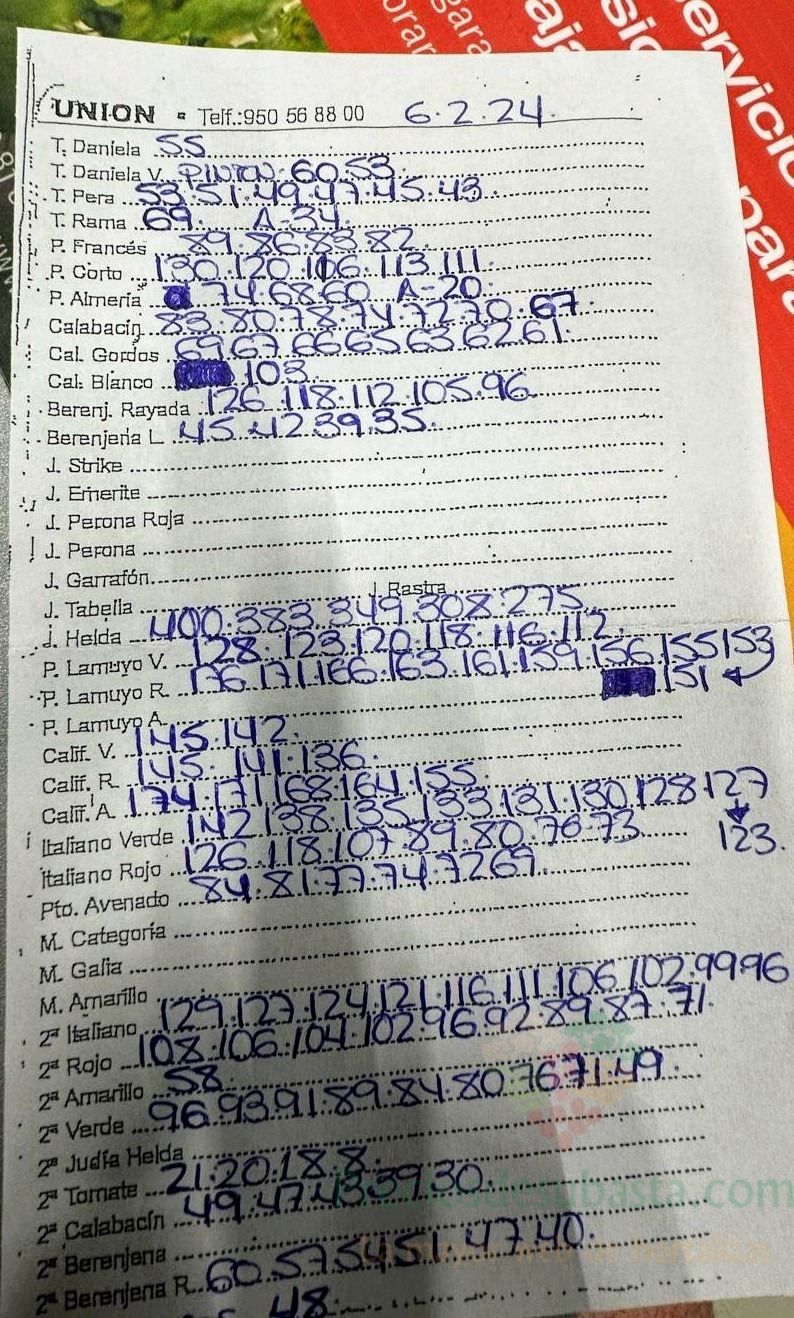 UNION - Telf.:950 56 88 00 6.2.24.
T. Daniela 55
T. Daniela V. PINTON. 60.53
T. Pera 53.51.49.47.45.43.
T. Rama 69. A-34.
P. Francés 89.86.83.82.
P. Corto 130.120.116.113.111.
P. Almería 74.68.60. A-20.
Calabacín 83.80.78.74.72.70.67.
Cal. Gordos 69.67.66.65.63.62.61.
Cal. Blanco 103.
Berenj. Rayada 126.118.112.105.96.
Berenjena L 45.42.39.35.
J. Strike
J. Emerite
J. Perona Roja
J. Perona
J. Garrafón
J. Tabella J. Rastra
J. Helda 400.383.349.308.275.
P. Lamuyo V. 128.123.120.118.116.112.
P. Lamuyo R. 176.171.166.163.161.159.156.155.153
151
P. Lamuyo A.
Calif. V. 145.142.
Calif. R. 145.141.136.
Calif. A. 174.171.168.164.155.
Italiano Verde 142.138.135.133.131.130.128.127
123.
Italiano Rojo 126.118.107.89.80.76.73
Pto. Avenado 84.81.77.74.72.69.
M. Categoría
M. Galia
M. Amarillo
2ª Italiano 129.127.124.121.116.111.106.102.99.96
2ª Rojo 108.106.104.102.96.92.89.87.71.
2ª Amarillo 58.
2ª Verde 96.93.91.89.84.80.76.71.49.
2ª Judía Helda
2ª Tomate 21.20.18.8.
2ª Calabacín 49.47.43.39.30.
2ª Berenjena
2ª Berenjena R. 60.57.54.51.47.40.
48.